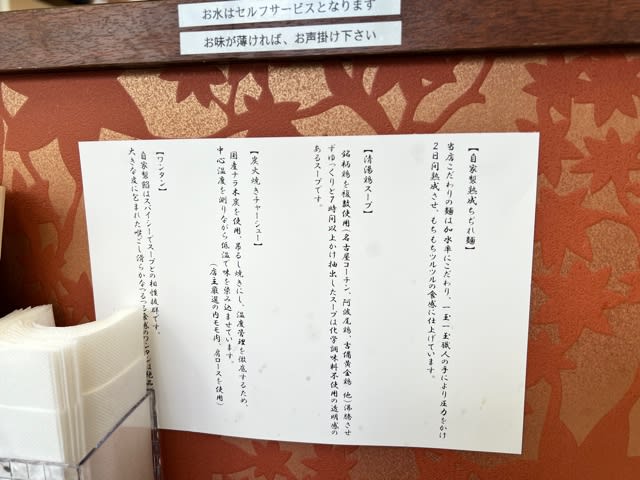 お水はセルフサービスとなります
お味が薄ければ、お声掛け下さい
【自家製熟成ちぢれ麺】
当店こだわりの麺は加水率にこだわり、一玉一玉職人の手により圧力をかけ
2日間熟成させ、もちもちツルツルの食感に仕上げています。
【清湯鶏スープ】
銘柄鶏を複数使用(名古屋コーチン、阿波尾鶏、吉備黄金鶏 他)沸騰させ
ずゆっくりと7時間以上かけ抽出したスープは化学調味料不使用の透明感の
あるスープです。
【炭火焼きチャーシュー】
国産ナラ木炭を使用、吊るし焼きにし、温度管理を徹底するため、
中心温度を測りながら低温で味を染み込ませています。
(店主厳選の内モモ肉、肩ロースを使用)
【ワンタン】
自家製餡はスパイシーでスープとの相性抜群です。
大きな皮に包まれた喉ごし滑らかなつるつる食感のワンタンは絶品